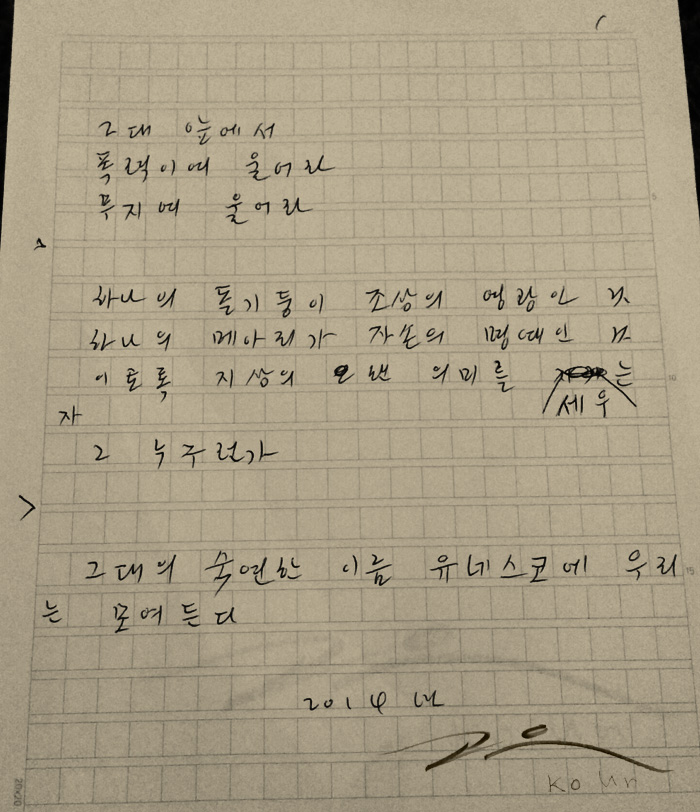 그대 앞에서
폭력이여 울어라
무지여 울어라
하나의 돌기둥이 조상의 영광인 것
하나의 메아리가 자손의 명예인 것
이토록 지상의 오랜 의미를 세우는
자
그 누구런가
그대의 숙연한 이름 유네스코에 우리
는 모여든다
2014년
고은
Ko Un
20x20
5
10
15